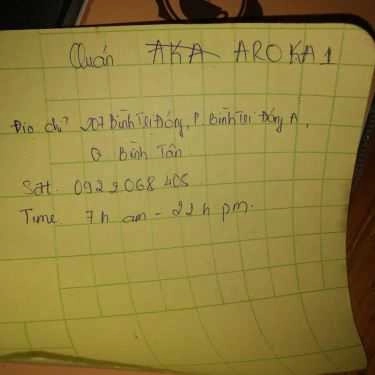 Quán AKA AROKA1
Địa chỉ: 207 Bình Trị Đông, P. Bình Trị Đông A,
Q Bình Tân
Sđt. 0922068405
Time 7h am - 22h pm.